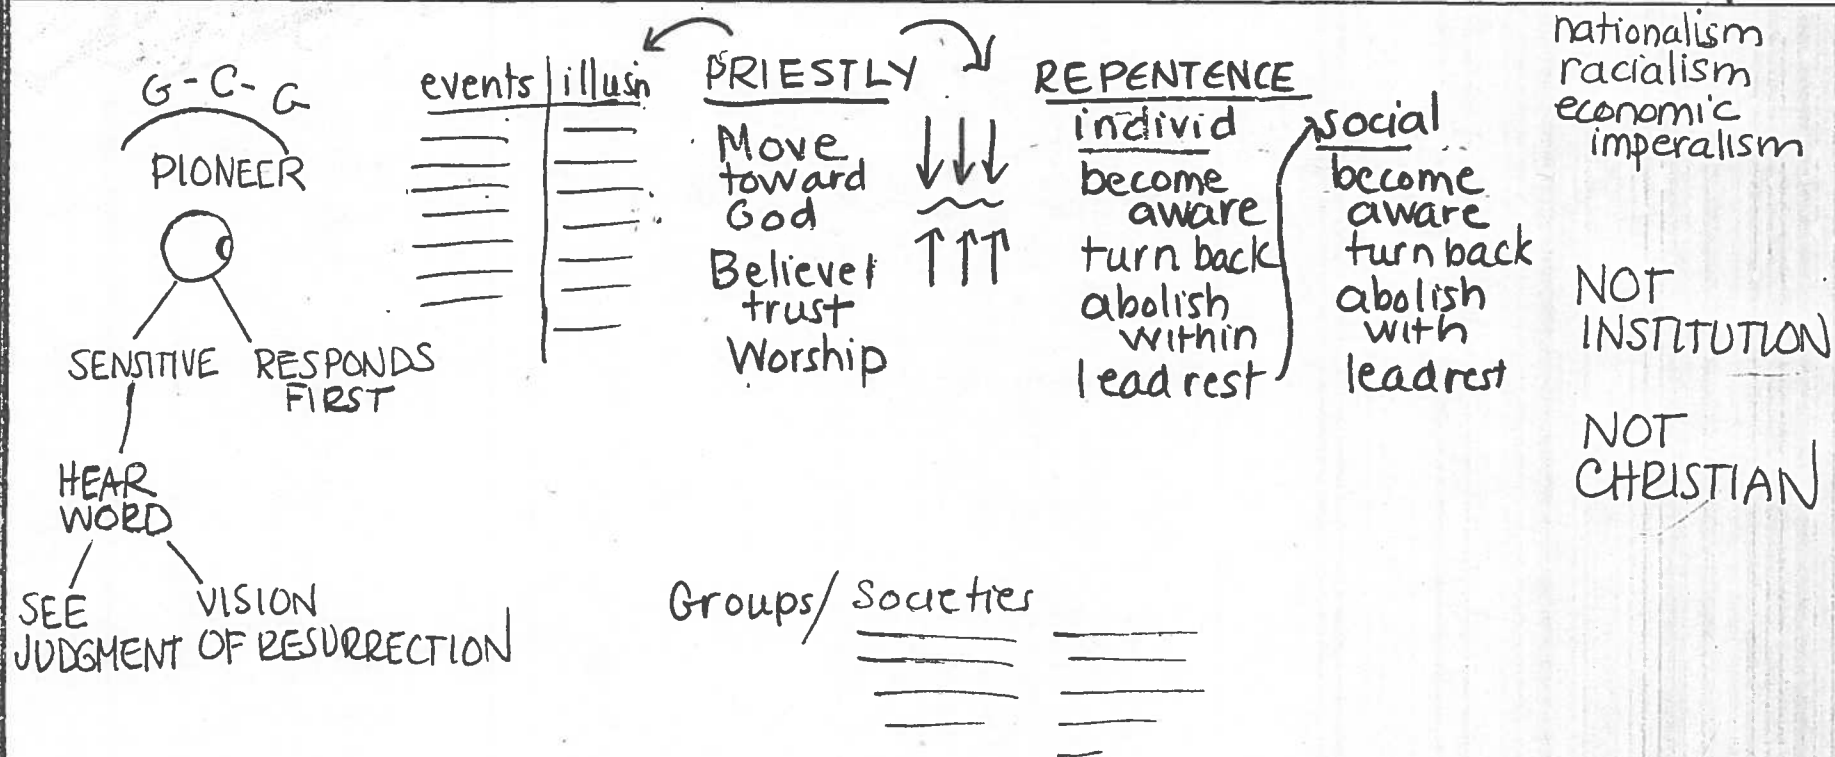 G-C-G
PIONEER
SENSITIVE RESPONDS
FIRST
HEAR
WORD
SEE
JUDGMENT
VISION
OF RESURRECTION
events illusn
PRIESTLY
Move
toward
God
Believe +
trust
Worship
REPENTENCE
individ
become
aware
turn back
abolish
within
lead rest
social
become
aware
turn back
abolish
with
lead rest
nationalism
racialism
economic
imperalism
NOT
INSTITUTION
NOT
CHRISTIAN
Groups/Societies